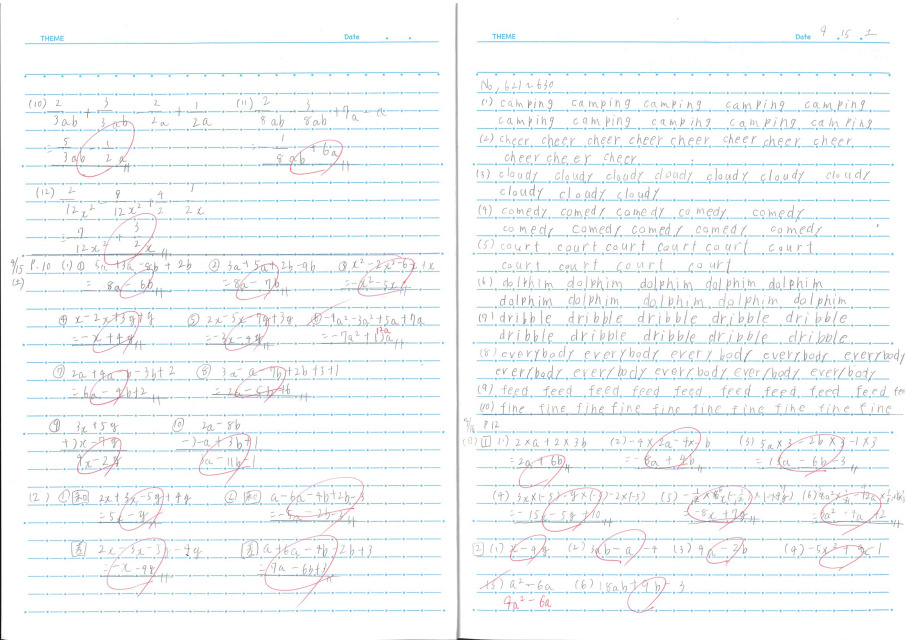 THEME
Date . .
(10) 2/3ab + 3/3ab - 2/2a + 1/2a (11) 2/8ab - 3/8ab + 7a - a
= 5/3ab - 1/2a
(12)
9/15 P.10 (1) ① 5a+3a-8b+2b ② 3a+5a+2b-9b ③ x²-2x²-6x+x
= 8a-6b = 8a-7b = -x²-5x
④ x-2x+3y+y ⑤ 2x-5x-7y+3y ⑥ -4a²-3a²+5a+7a
= -x+4y = -3x-4y = -7a²+ 12a
⑨ 3x+5y ⑩ 2a-8b
+)x-7y -)-a+3b+1
4x-2y 3a-11b-1
(2) ① 和 2x+3x-5y+4y ② 和 a-6a-4b+2b-3
= 5x-y = -5a-2b-3
差 2x-3x-3y-4y 差 a+6a-4b-2b+3
= -x-9y = 7a-6b+3
THEME
Date 9 . 15 . 1
No, 621~630
(1) camping camping camping camping camping
camping camping camping camping camping
(2) cheer, cheer, cheer, cheer cheer, cheer cheer, cheer,
cheer cheer cheer
(3) cloudy cloudy cloudy cloudy cloudy cloudy cloudy
cloudy cloudy cloudy
(4) comedy, comedy comedy comedy, comedy
comedy, comedy, comedy, comedy comedy
(5) court court court court court court
court court court court
(6) dolphim dolphim dolphim dolphim, dolphim
dolphim dolphim dolphim, dolphim dolphim
(7) dribble dribble dribble dribble dribble
dribble dribble dribble dribble dribble.
(8) everybody everybody everybody everybody, everybody
everybody, everybody everybody everybody everybody
(9) feed, feed, feed feed feed feed, feed feed, feed
(10) fine, fine, fine fine fine fine fine fine fine fine
P12
1 (1) 2×a+2×3b (2) -4×2a-4×-b (3) 5a×3-2b×3-1×3
= 2a+6b = -8a+4b = 15a-6b-3
(4) 3x×(-5)-y×(-5)-2×(-5)
= -15x-5y+10 = -8x+7y
2 (1) x-9y (2) 3ab-a-4 (3) 9a-2b (4) -5x²+9x-1
(5) a²-6a (6) 18ab+9b-3
9a²-6a